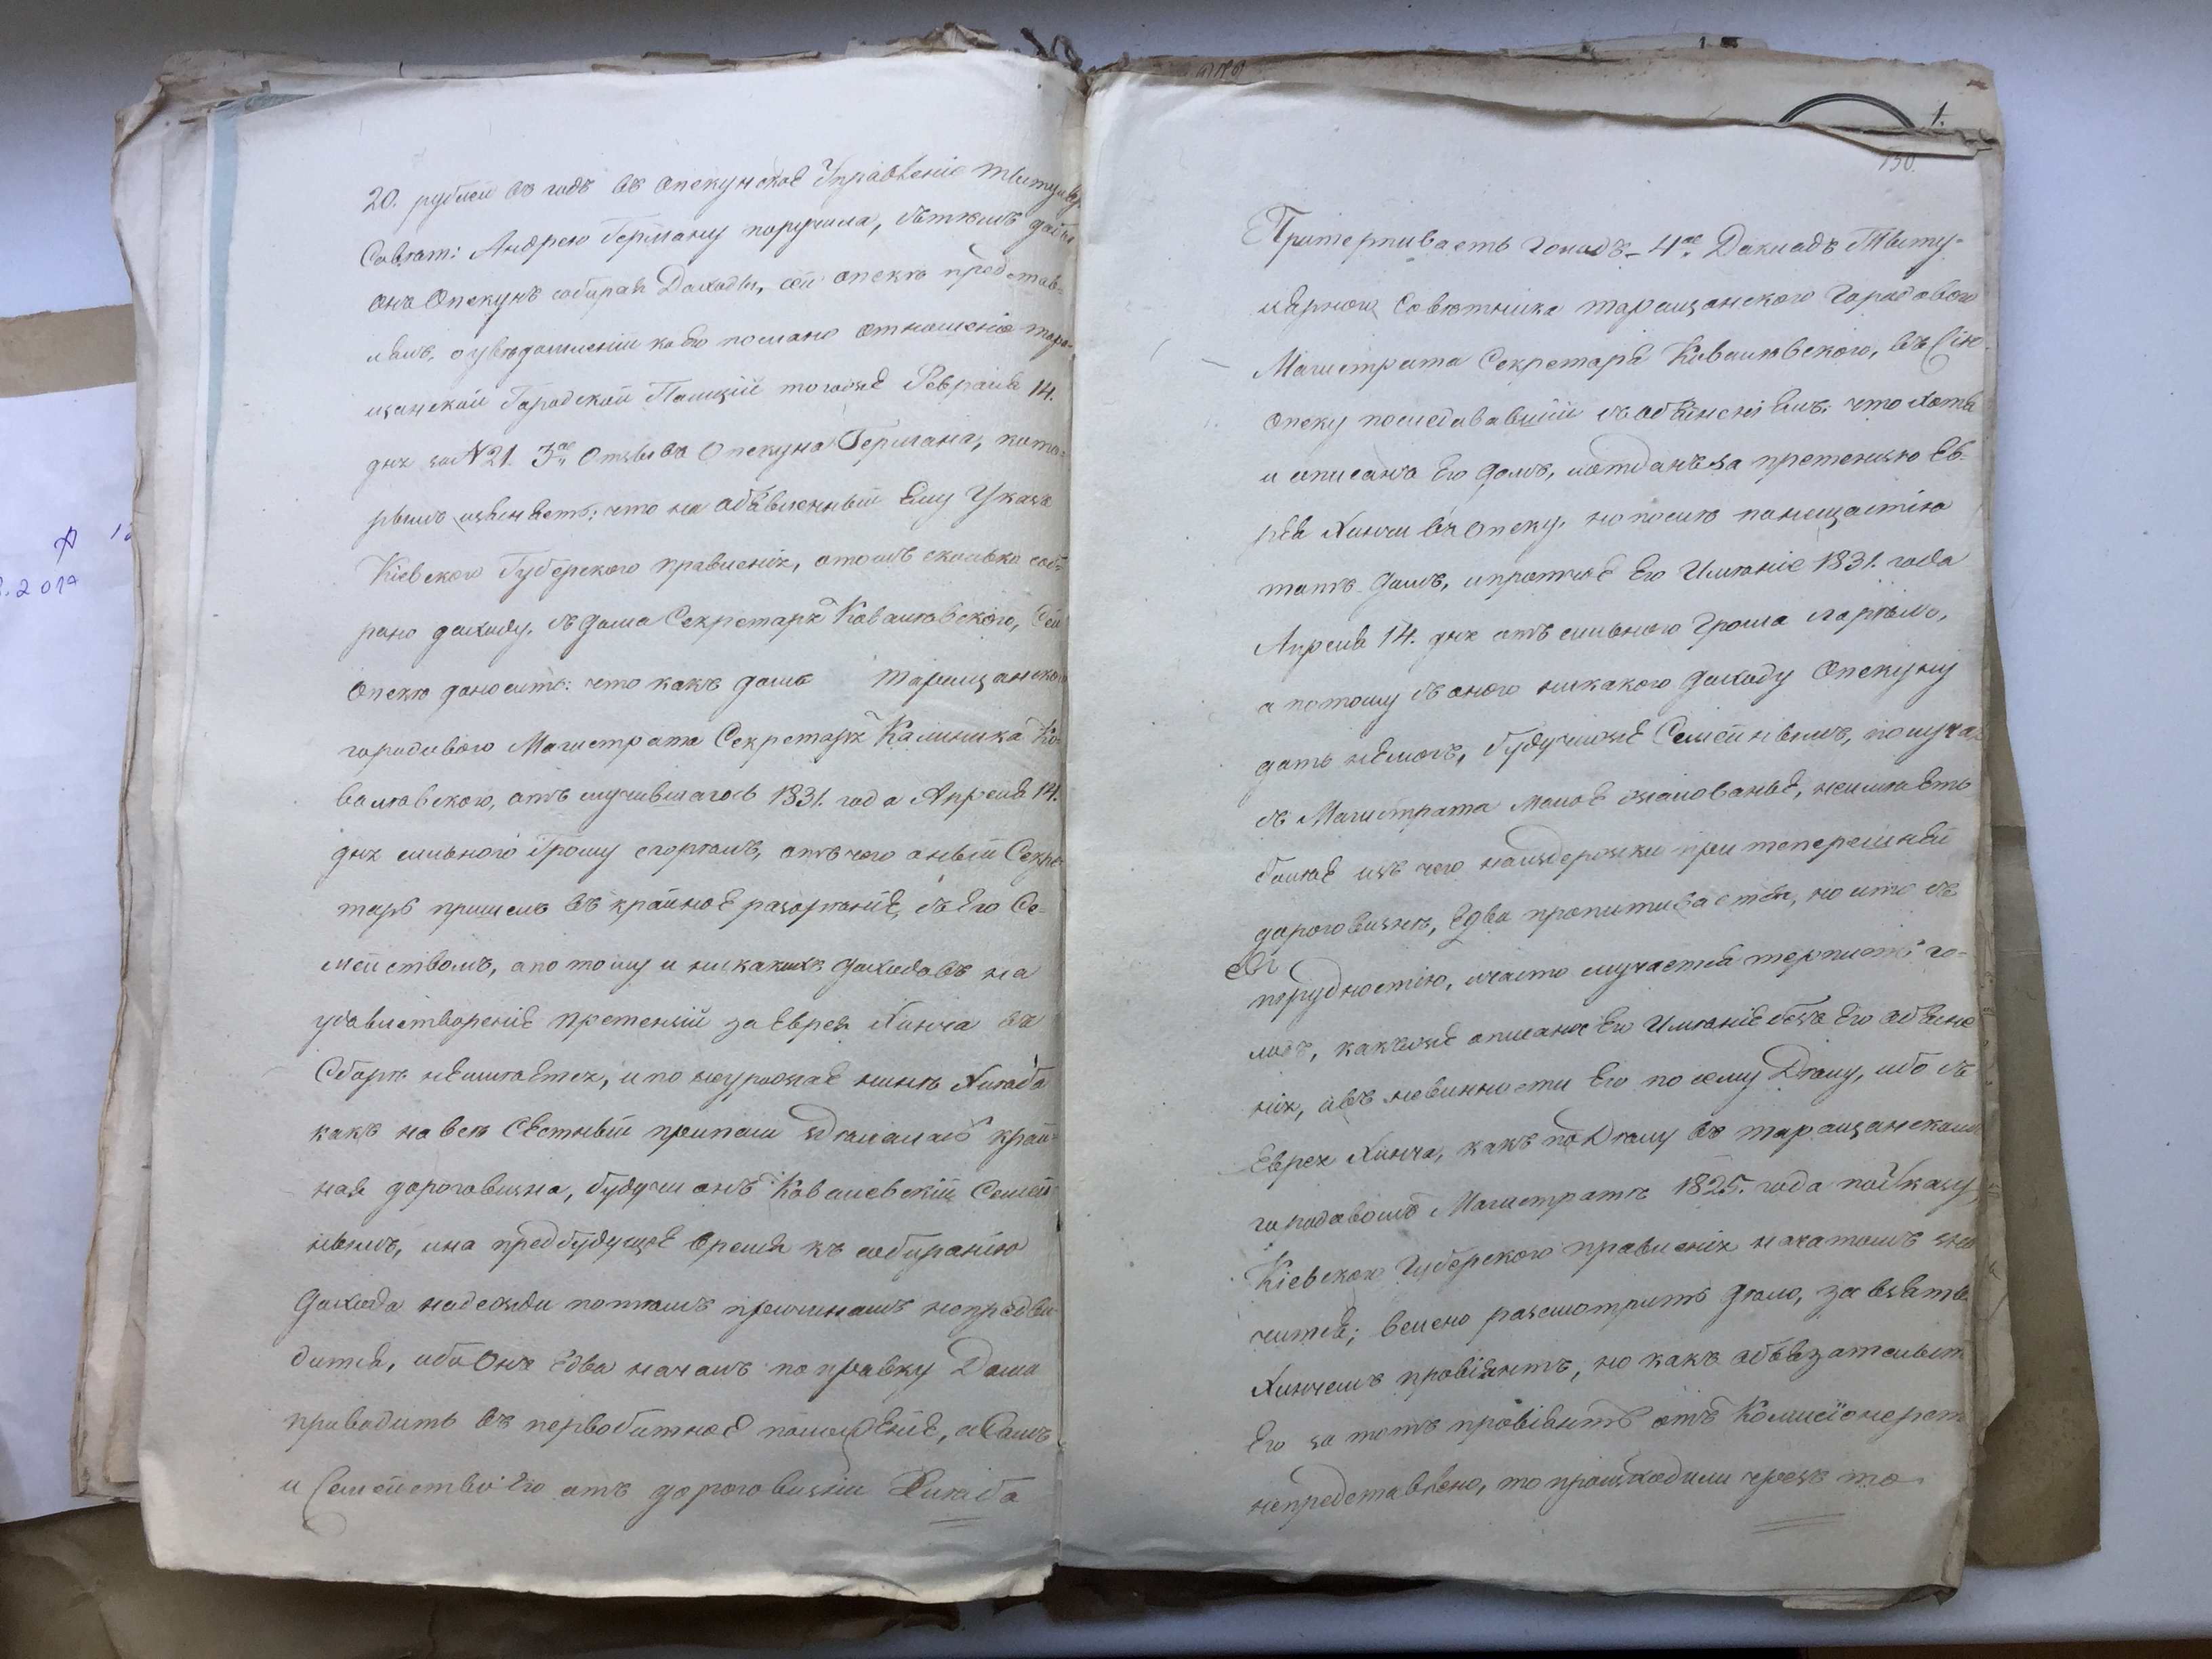 20. рублей въ годъ въ опекунское Управленіе титуляр.
Совѣт: Андрею Герману поручила, съ тѣмъ дабы
онъ Опекунъ собирая Доходы, сей опекѣ представ-
лялъ, о увѣдомленіи коего послано отношеніе тара-
щанской Городской Полиціи того же Февраля 14.
дня за N 21. 3ее Отзывъ Опекуна Германа, кото-
рымъ изъясняетъ: что на объявленный Ему Указъ
Кіевского Губерского правленія, о томъ сколько соб-
рано доходу, съ дома Секретаря Ковалѣвского, Сей
Опекѣ доноситъ: что какъ домъ таращанского
городового Магистрата Секретаря Калиника Ко-
валѣвского, отъ случившагось 1831. года Апреля 14.
дня сильного Грому сгорѣлъ, отъ чего оный Секре-
тарь пришелъ въ крайное разорѣніе, съ Его Се-
мействомъ, а по тому и никакихъ доходовъ на
удовлетвореніе претензій за Еврея Хинча въ
Сборѣ неимѣется, и по неурожаю нынѣ Хлѣба
какъ на всѣ Съестный припасы здѣлалась край-
ная дороговизна, будучи онъ Ковалевскій Семей-
нымъ, и на предбудущее время къ собиранію
дохода надежди по тѣмъ причинамъ непредви-
дится, ибо Онъ Едва началъ поправку Дома
приводить въ первобитное положеніе, а Самъ
и Семейство Его отъ дороговизни Хлѣба
1.
130.
Притерпиваетъ Голодъ_ 4ое Докладъ Титу-
лярного Совѣтника таращанского Городового
Магистрата Секретаря Ковалѣвского, въ Сію
Опеку последовавшій съ объясненіемъ: что хотя
и описанъ Его домъ, и отданъ за претензію Ев-
рея Хинчи въ опеку, но послѣ по нещастію
тотъ домъ, и протчее Его Имѣніе 1831. года
Апреля 14. дня отъ сильного Грома згорѣло,
а потому съ оного никакого доходу Опекуну
дать немогъ, будучи же Семейнымъ, получая
съ Магистрата малое жалованье, неимѣетъ
болѣе изъ чего на издержки при теперешней
дороговизнѣ, Едва пропитивается, но и то съ
трудностію, и часто случается терпитъ го-
лодъ, какъ же описано Его Имѣніе безъ Его объясне
нія, и въ невинности Его по сему Дѣлу, ибо съ
Еврея Хинча, какъ по Дѣлу въ таращанскомъ
городовомъ Магистратѣ 1825. года по Указу
Кіевского Губерского правленія начатомъ зна
чится; велено разсмотрить дѣло, за взятъ
Хинчемъ провіянтъ, но какъ объвязательст
Его за тотъ провіянтъ отъ Комисіонерст
непредставлено, то происходили чрезъ то